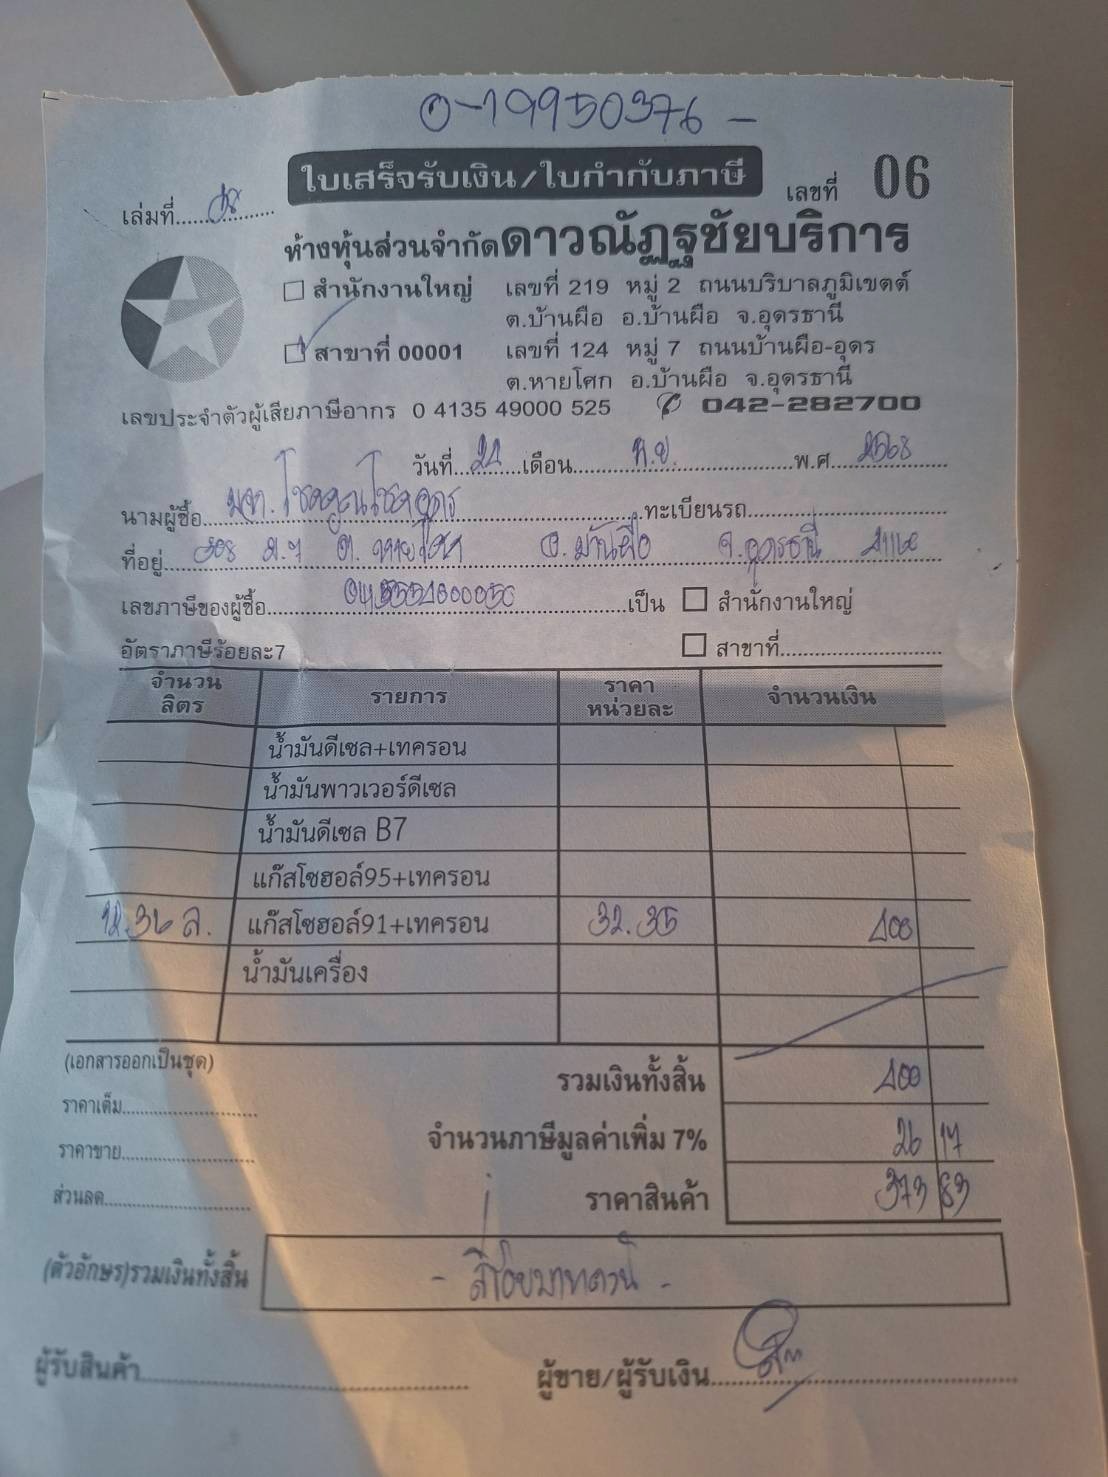 0-19950376 -
ใบเสร็จรับเงิน/ใบกำกับภาษี
เลขที่ 06
เล่มที่........
ห้างหุ้นส่วนจำกัดดาวณัฏฐชัยบริการ
สำนักงานใหญ่ เลขที่ 219 หมู่ 2 ถนนบริบาลภูมิเขตต์
ต.บ้านผือ อ.บ้านผือ จ.อุดรธานี
สาขาที่ 00001 เลขที่ 124 หมู่ 7 ถนนบ้านผือ-อุดร
ต.หายโศก อ.บ้านผือ จ.อุดรธานี
เลขประจำตัวผู้เสียภาษีอากร 0 4135 49000 525 042-282700
วันที่........เดือน....พ.ย.....พ.ศ....2568
นามผู้ซื้อ....หจก. โชคคูณโชคอุดร....ทะเบียนรถ........
ที่อยู่.... ต. หายโศก อ. บ้านผือ จ. อุดรธานี
เลขภาษีของผู้ซื้อ........เป็น สำนักงานใหญ่
อัตราภาษีร้อยละ7 สาขาที่........
จำนวนลิตร รายการ ราคาหน่วยละ จำนวนเงิน
น้ำมันดีเซล+เทครอน
น้ำมันพาวเวอร์ดีเซล
น้ำมันดีเซล B7
แก๊สโซฮอล์95+เทครอน
12.36 ล. แก๊สโซฮอล์91+เทครอน 32.35 400
น้ำมันเครื่อง
(เอกสารออกเป็นชุด)
รวมเงินทั้งสิ้น 400
ราคาเต็ม........
จำนวนภาษีมูลค่าเพิ่ม 7% 26 17
ราคาขาย........
ราคาสินค้า 373 83
ส่วนลด........
(ตัวอักษร)รวมเงินทั้งสิ้น - สี่ร้อยบาทถ้วน -
ผู้รับสินค้า........ ผู้ขาย/ผู้รับเงิน........